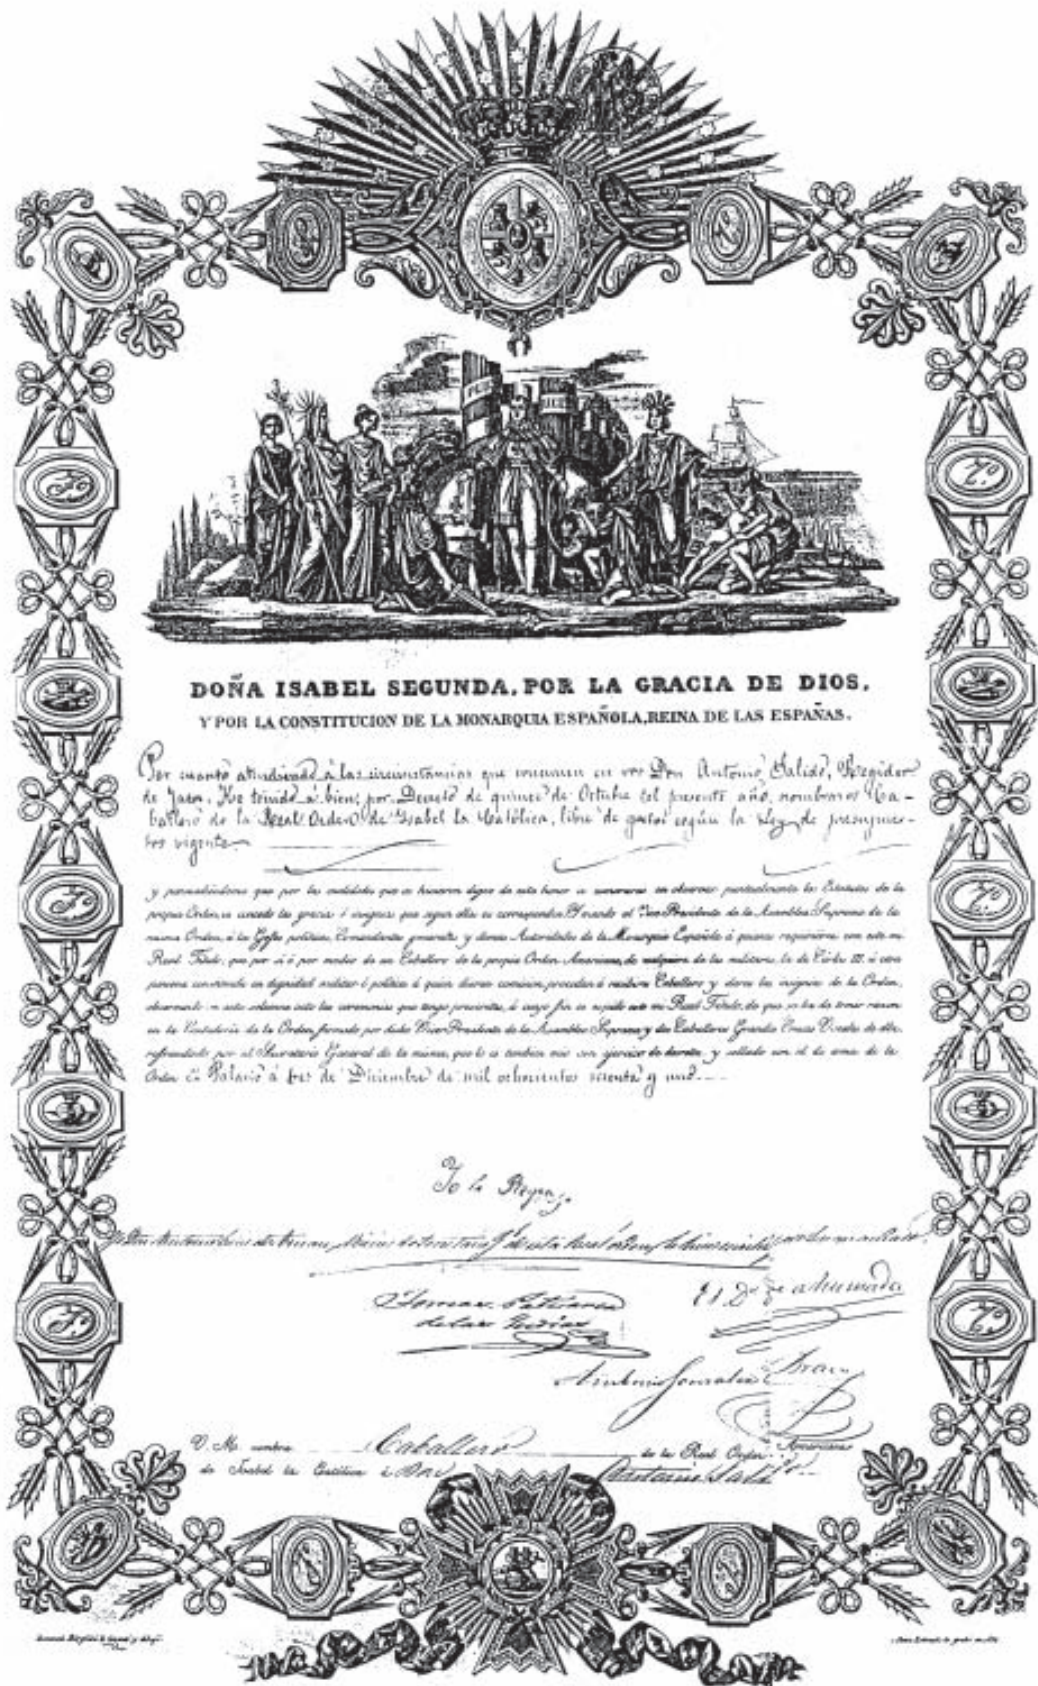 DOÑA ISABEL SEGUNDA, POR LA GRACIA DE DIOS,
Y POR LA CONSTITUCION DE LA MONARQUIA ESPAÑOLA, REINA DE LAS ESPAÑAS.
Por cuanto atendiendo á las circunstancias que concurren en vos Don Antonio Salido, Regidor
de Jaen, He tenido á bien, por Decreto de quince de Octubre del presente año, nombraros Ca-
ballero de la Real Orden de Isabel la Católica, libre de gastos según la Ley de presupues-
tos vigente
y persuadiéndome que por las cualidades que os hicieron digno de este honor os esmerareis en observar puntualmente los Estatutos de la
propia Orden, os concedo las gracias é insignias que segun ellos os corresponden. Y mando al Vice-Presidente de la Asamblea Suprema de la
misma Orden, á los Gefes politicos, Comandantes generales y demas Autoridades de la Monarquia Española á quienes requiriereis con este mi
Real Titulo, que por sí ó por medio de un Caballero de la propia Orden Americana, de cualquiera de las militares, la de Cárlos III, ú otra
persona constituida en dignidad militar ó politica á quien dieren comision, procedan á recibiros Caballero y daros las insignias de la Orden,
observando en este solemne acto las ceremonias que tengo prescritas, á cuyo fin os expido este mi Real Titulo, de que se ha de tomar razon
en la Contaduría de la Orden, firmado por dicho Vice-Presidente de la Asamblea Suprema y dos Caballeros Grandes Cruces Vocales de ella,
refrendado por el Secretario General de la misma, que lo es tambien mio con ejercicio de decretos, y sellado con el de armas de la
Orden En Palacio á tres de Diciembre de mil ochocientos sesenta y uno
Yo la Reyna
Tomas Patriarca
de las Indias
El D. de Ahumada
Antonio Gonzalez
V. M. nombra Caballero de la Real Orden Americana
de Isabel la Católica á Don Antonio Salido